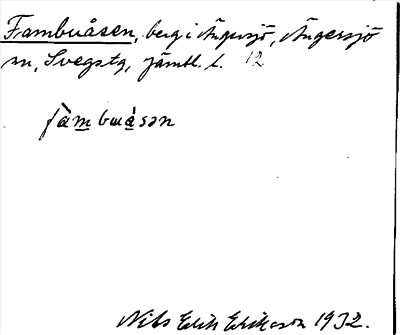 Fambuåsen, berg i Ängersjö, Ängersjö
sn, Svegs tg, Jämtl. l. 12
fàm̲bu̲å̀sən
Nils Erik Erikson 1932.